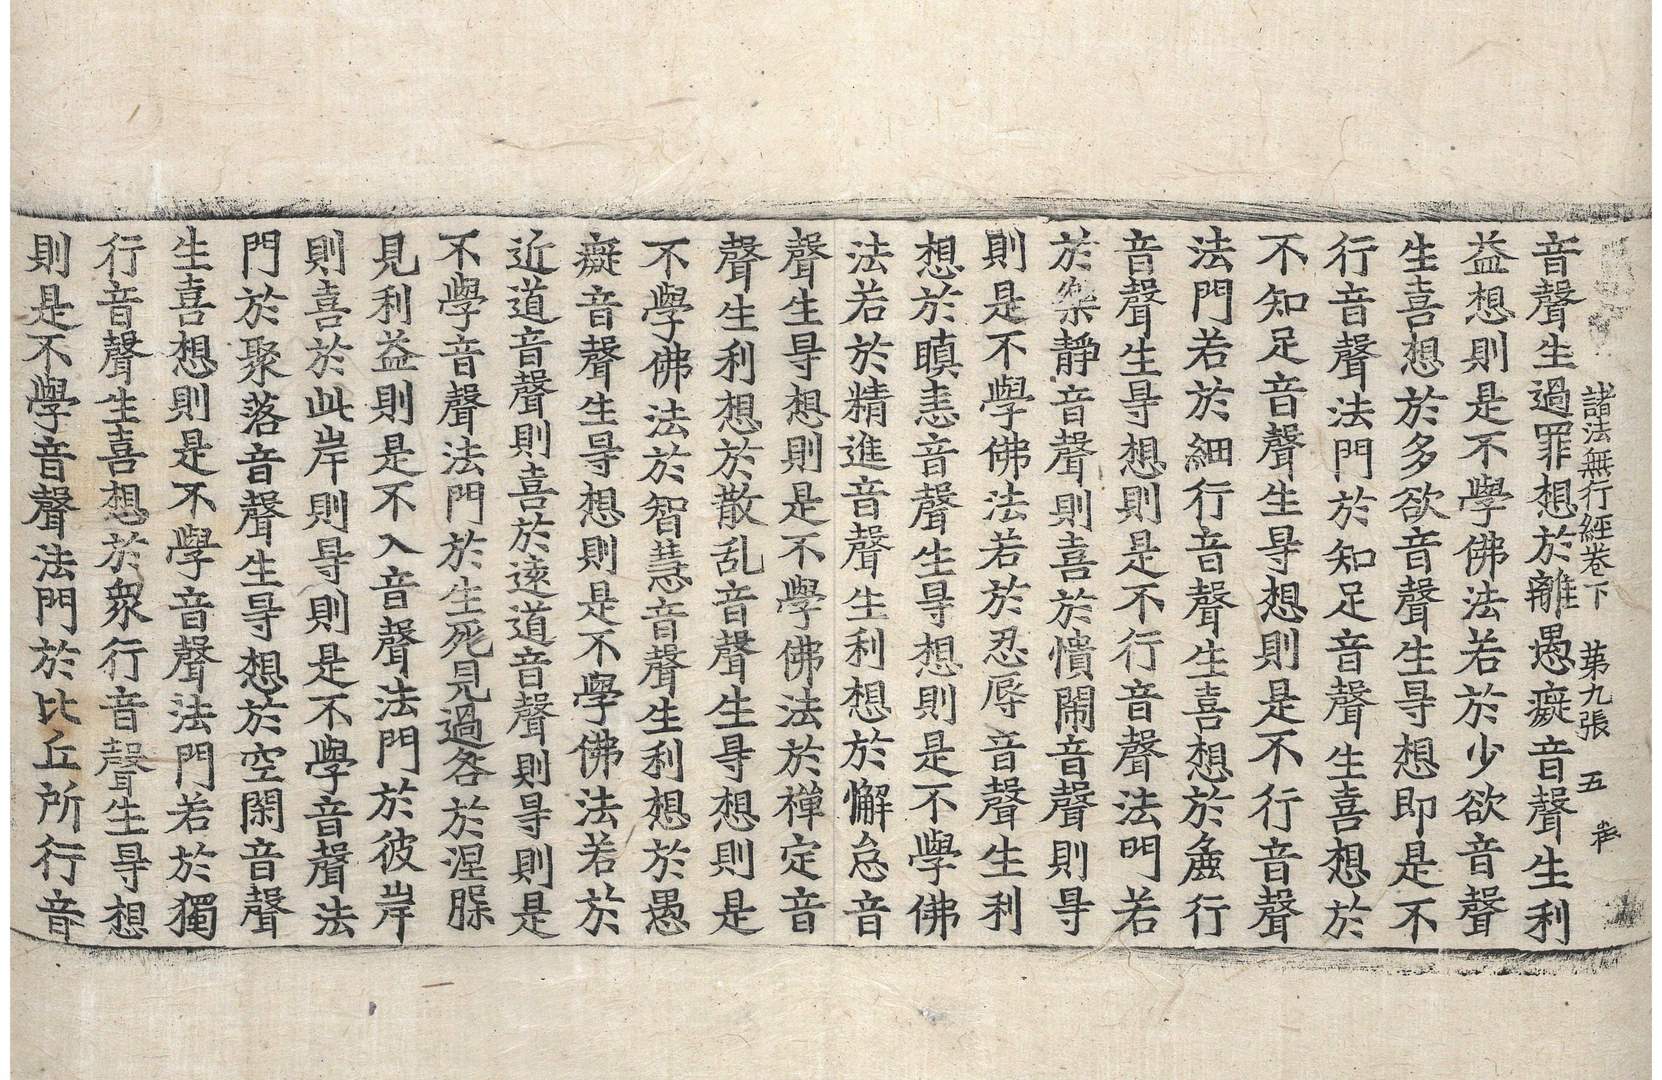 諸法無行經卷下 第九張 五
音聲生過罪想於離愚癡音聲生利
益想則是不學佛法若於少欲音聲
生喜想於多欲音聲生㝵想即是不
行音聲法門於知足音聲生喜想於
不知足音聲生㝵想則是不行音聲
法門若於細行音聲生喜想於麁行
音聲生㝵想則是不行音聲法門若
於樂静音聲則喜於憒閙音聲則㝵
則是不學佛法若於忍辱音聲生利
想於瞋恚音聲生㝵想則是不學佛
法若於精進音聲生利想於懈怠音
聲生㝵想則是不學佛法於禪定音
聲生利想於散乱音聲生㝵想則是
不學佛法於智慧音聲生利想於愚
癡音聲生㝵想則是不學佛法若於
近道音聲則喜於遠道音聲則㝵則是
不學音聲法門於生死見過咎於涅槃
見利益則是不入音聲法門於彼岸
則喜於此岸則㝵則是不學音聲法
門於聚落音聲生㝵想於空閑音聲
生喜想則是不學音聲法門若於獨
行音聲生喜想於衆行音聲生㝵想
則是不學音聲法門於比丘所行音